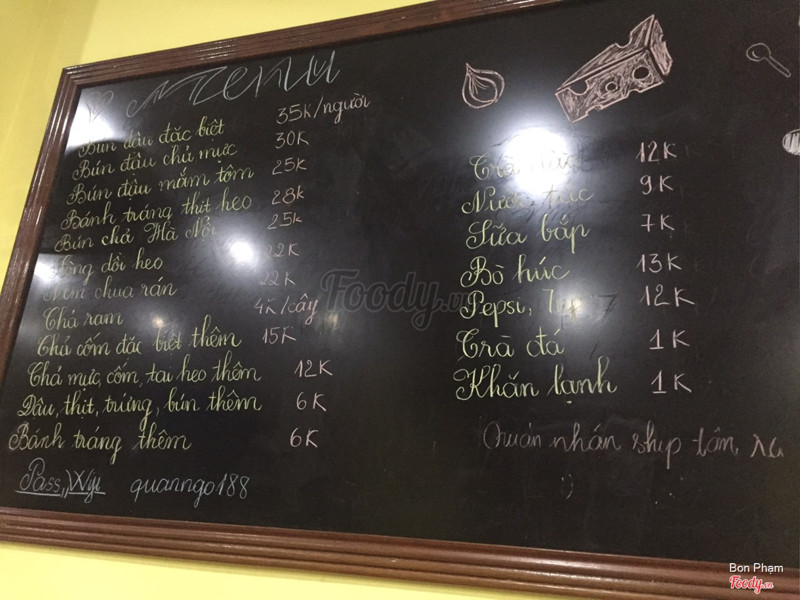 Menu
Bún đậu đặc biệt 35k/người
Bún đậu chả mực 30K
Bún đậu mắm tôm 25K
Bánh tráng thịt heo 28k
Bún chả Hà Nội 25k
dồi heo 22k
Nem chua rán 22k
Chả ram 4k/cây
Chả cốm đặc biệt thêm 15K
Chả mực, cốm, tai heo thêm 12K
Đậu, thịt, trứng, bún thêm 6K
Bánh tráng thêm 6K
Pass Wifi quanngo188
12K
Nước 9K
Sữa bắp 7K
Bò húc 13K
Pepsi, 12K
Trà đá 1K
Khăn lạnh 1K
Quán nhận ship tận
:)
Foody.vn
Bon Phạm
Foody.vn